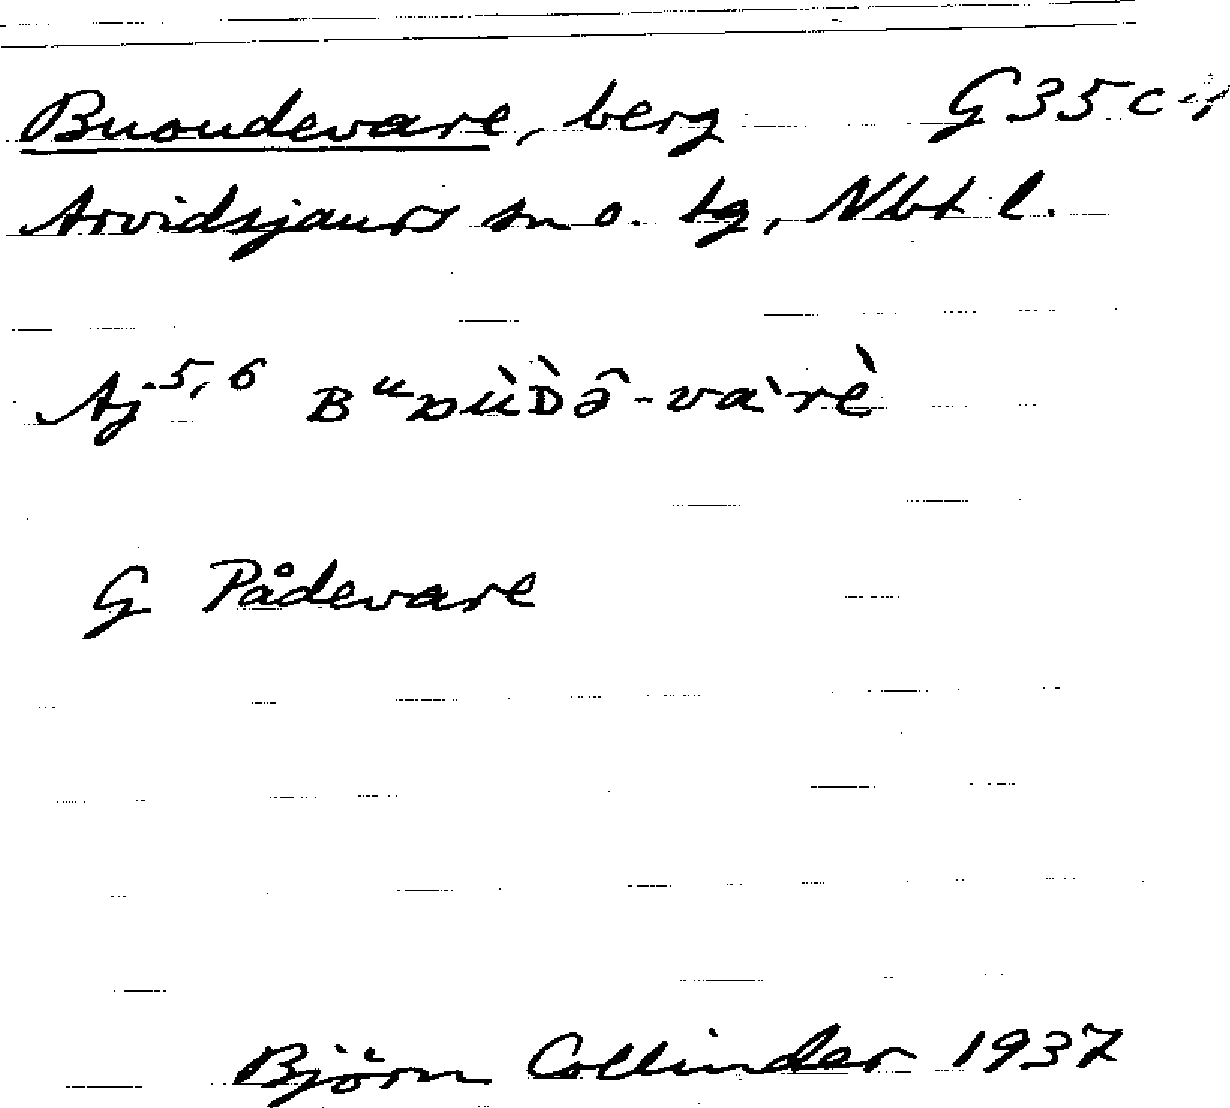 Buoudevare, berg G35c-r
Arvidsjaurs sn o. tg, Nbt l.
Aj 5, 6 B ù D -va`rè
G Pådevare
Björn Collinder 1937